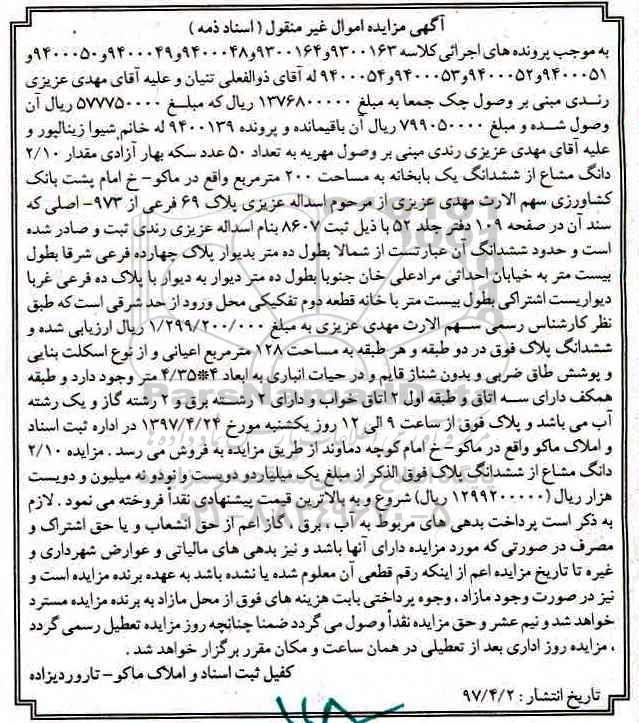 آگهی مزایده اموال غیر منقول ( اسناد ذمه )
به موجب پرونده های اجرائی کلاسه ۹۳۰۰۱۶۳و۹۳۰۰۱۶۴و۹۴۰۰۰۴۸و۹۴۰۰۰۴۹و۹۴۰۰۰۵۰و
۹۴۰۰۰۵۱و۹۴۰۰۰۵۲و۹۴۰۰۰۵۳و۹۴۰۰۰۵۴ له آقای ذوالفعلی تنیان و علیه آقای مهدی عزیزی
رندی مبنی بر وصول چک جمعا به مبلغ ۱۳۷۶۸۰۰۰۰۰ ریال که مبلغ ۵۷۷۷۵۰۰۰۰ ریال آن
وصول شده و مبلغ ۷۹۹۰۵۰۰۰۰ ریال آن باقیمانده و پرونده ۹۴۰۰۱۳۹ له خانم شیوا زینالپور و
علیه آقای مهدی عزیزی رندی مبنی بر وصول مهریه به تعداد ۵۰ عدد سکه بهار آزادی مقدار ۲/۱۰
دانگ مشاع از ششدانگ یک بابخانه به مساحت ۲۰۰ مترمربع واقع در ماکو- خ امام پشت بانک
کشاورزی سهم الارث مهدی عزیزی از مرحوم اسداله عزیزی پلاک ۶۹ فرعی از ۹۷۳- اصلی که
سند آن در صفحه ۱۰۹ دفتر جلد ۵۲ با ذیل ثبت ۸۶۰۷ بنام اسداله عزیزی رندی ثبت و صادر شده
است و حدود ششدانگ آن عبارتست از شمالا بطول ده متر بدیوار پلاک چهارده فرعی شرقا بطول
بیست متر به خیابان احداثی مرادعلی خان جنوبا بطول ده متر دیوار به دیوار با پلاک ده فرعی غربا
دیواریست اشتراکی بطول بیست متر با خانه قطعه دوم تفکیکی محل ورود از حد شرقی است که طبق
نظر کارشناس رسمی سهم الارث مهدی عزیزی به مبلغ ۱/۲۹۹/۲۰۰/۰۰۰ ریال ارزیابی شده و
ششدانگ پلاک فوق در دو طبقه و هر طبقه به مساحت ۱۲۸ مترمربع اعیانی و از نوع اسکلت بنایی
و پوشش طاق ضربی و بدون شناژ قایم و در حیات انباری به ابعاد ۴*۴/۳۵ متر وجود دارد و طبقه
همکف دارای سه اتاق و طبقه اول ۲ اتاق خواب و دارای ۲ رشته برق و ۲ رشته گاز و یک رشته
آب می باشد و پلاک فوق از ساعت ۹ الی ۱۲ روز یکشنبه مورخ ۱۳۹۷/۴/۲۴ در اداره ثبت اسناد
و املاک ماکو واقع در ماکو- خ امام کوچه دماوند از طریق مزایده به فروش می رسد . مزایده ۲/۱۰
دانگ مشاع از ششدانگ پلاک فوق الذکر از مبلغ یک میلیاردو دویست و نودو نه میلیون و دویست
هزار ریال (۱۲۹۹۲۰۰۰۰۰ ریال) شروع و به بالاترین قیمت پیشنهادی نقداً فروخته می شود . لازم
به ذکر است پرداخت بدهی های مربوط به آب ، برق ، گاز اعم از حق انشعاب و یا حق اشتراک و
مصرف در صورتی که مورد مزایده دارای آنها باشد و نیز بدهی های مالیاتی و عوارض شهرداری و
غیره تا تاریخ مزایده اعم از اینکه رقم قطعی آن معلوم شده یا نشده باشد به عهده برنده مزایده است و
نیز در صورت وجود مازاد ، وجوه پرداختی بابت هزینه های فوق از محل مازاد به برنده مزایده مسترد
خواهد شد و نیم عشر و حق مزایده نقداً وصول می گردد ضمنا چنانچه روز مزایده تعطیل رسمی گردد
، مزایده روز اداری بعد از تعطیلی در همان ساعت و مکان مقرر برگزار خواهد شد .
کفیل ثبت اسناد و املاک ماکو- تاروردیزاده
تاریخ انتشار : ۹۷/۴/۲